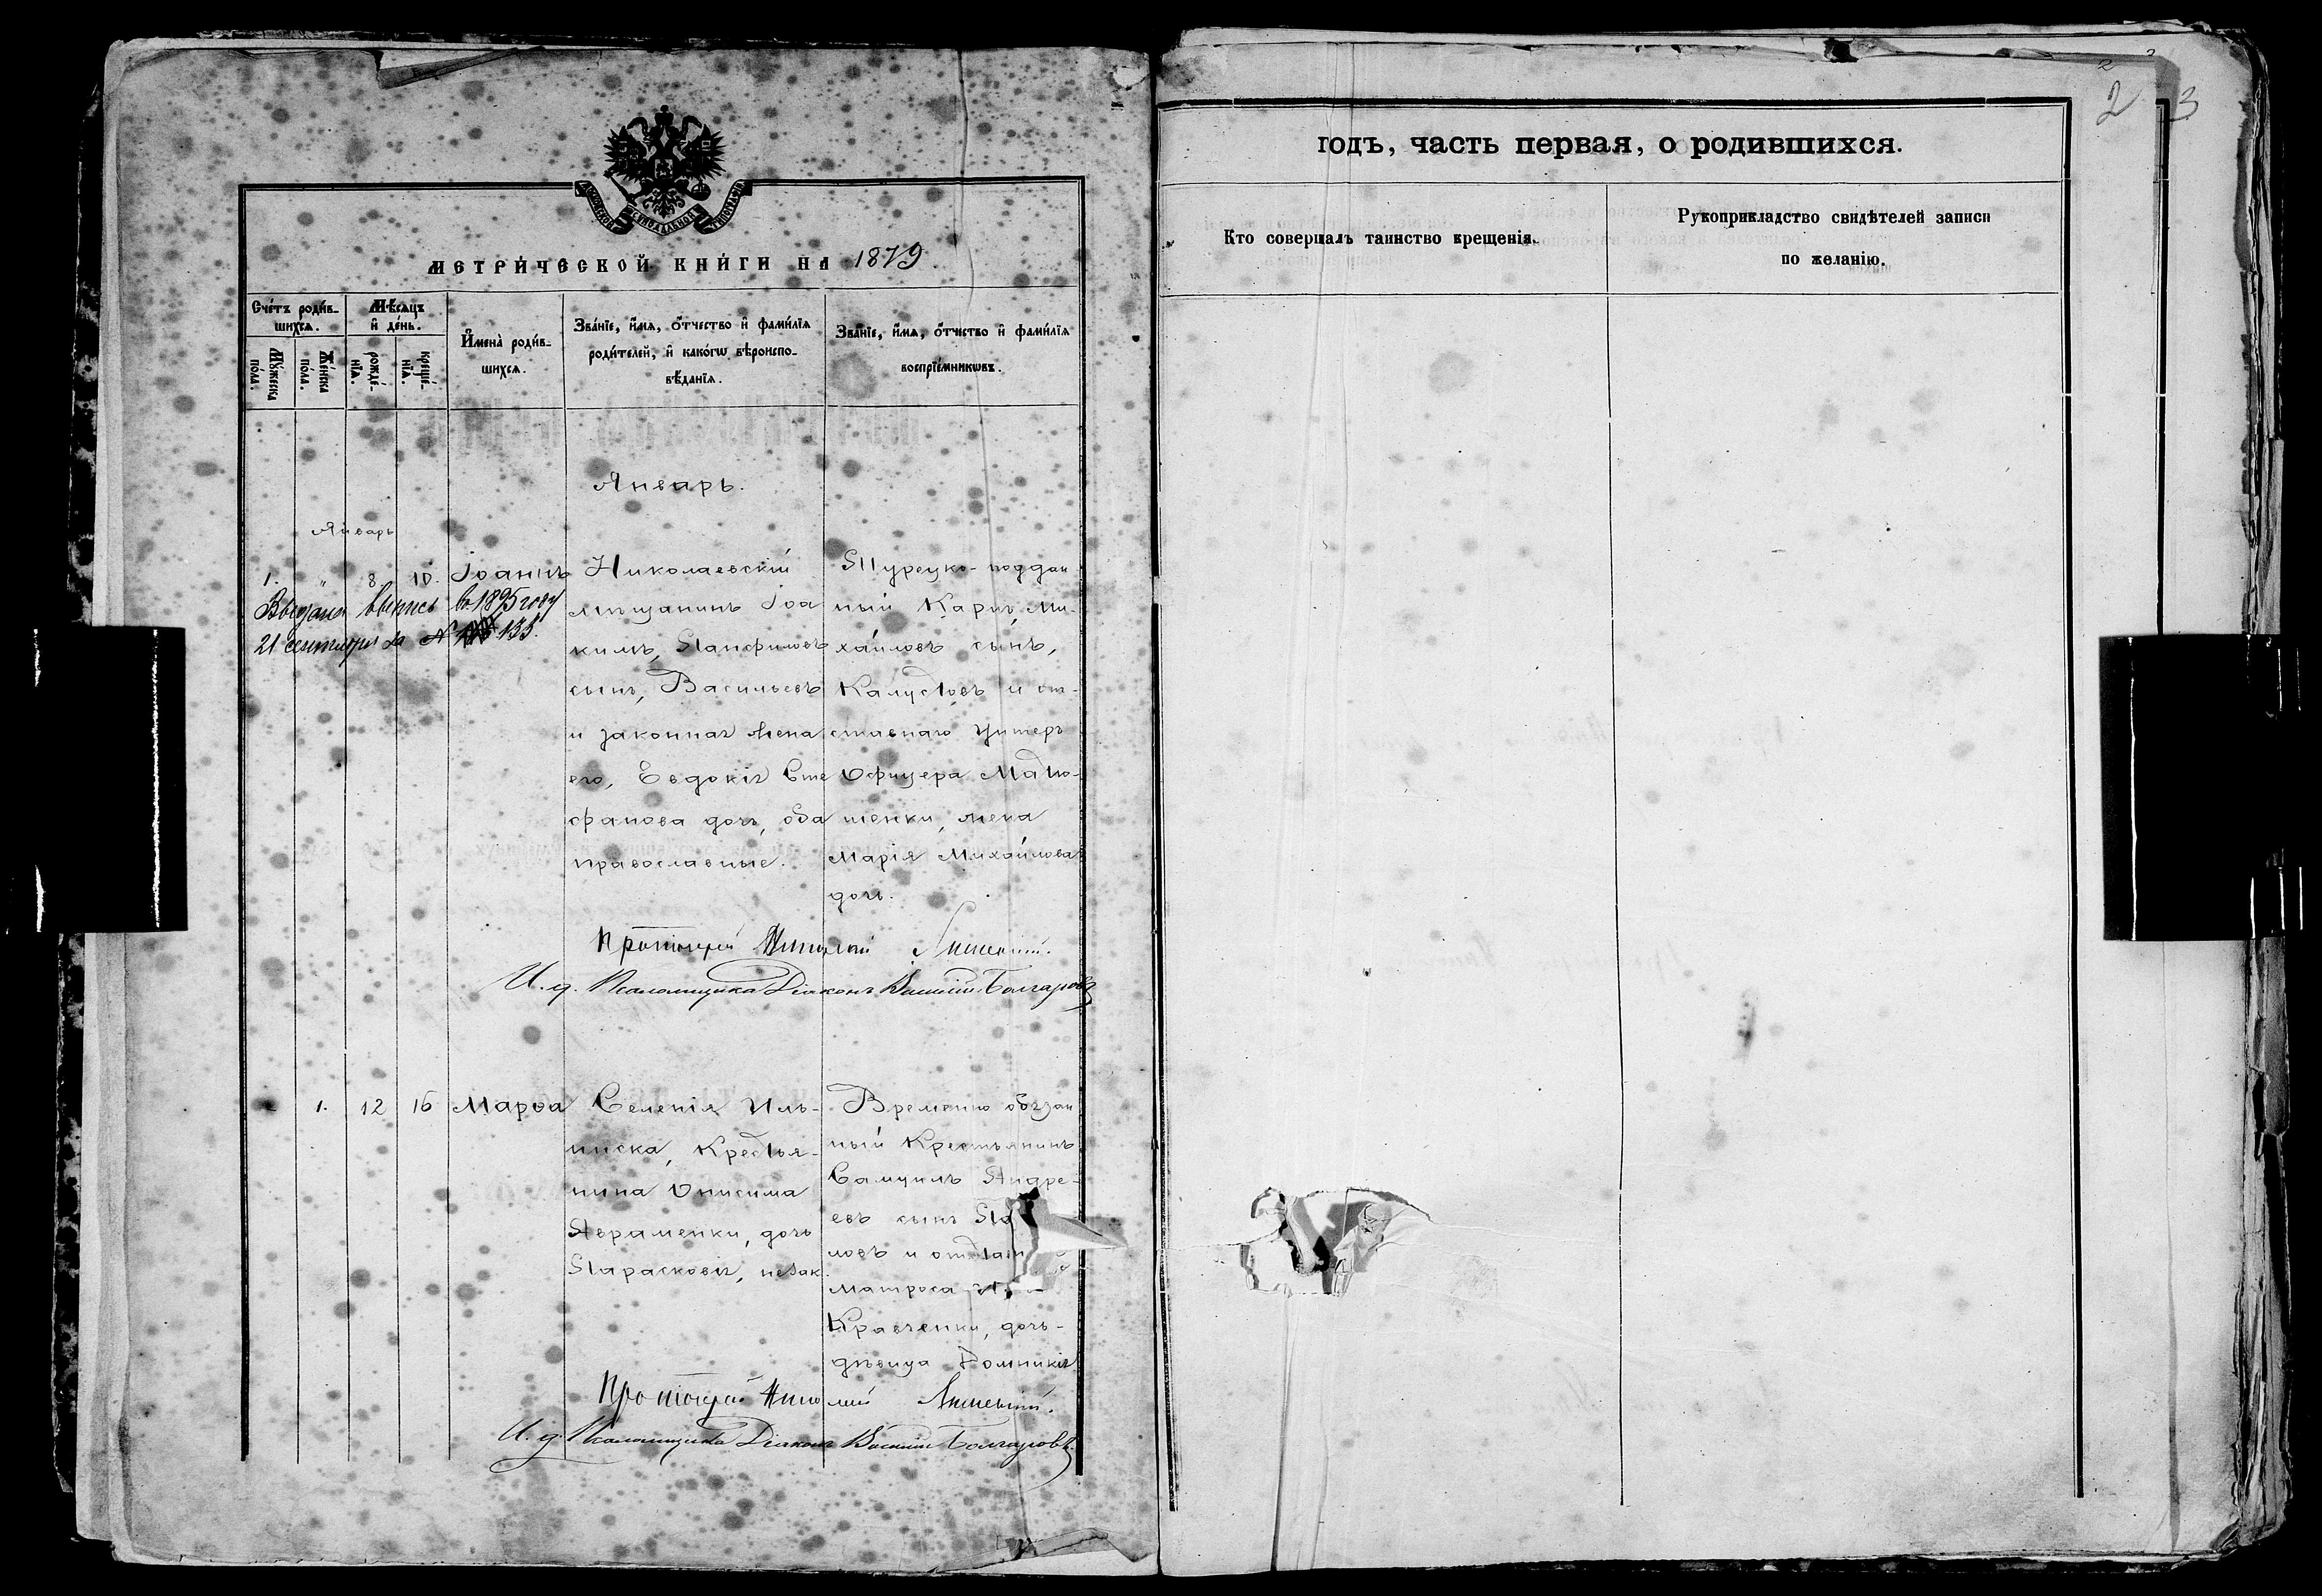 МОСКОВСКОЙ СѴНОДАЛЬНОЙ ТИПОГРАФІИ
МЕТРИ́ЧЕСКОЙ КНИ́ГИ НА 1879
Сче́тъ роди́в-
шихсѧ.
Мѣ́сѧцъ
и҆ день.
Мꙋ́жеска
по́ла.
Же́нска
по́ла.
рожде́-
нїѧ.
креще́-
нїѧ.
И҆мена̀ роди́в-
шихсѧ.
Зва́нїе, и҆́мѧ, о҆́тчество и҆ фами́лїѧ
роди́телей, и҆ како́гѡ вѣроиспо-
вѣ́данїѧ.
Зва́нїе, и҆́мѧ, о҆́тчество и҆ фами́лїѧ
воспрїе́мникѡвъ.
Январь.
Январь
1. " 8 10. Іоаннъ
Выдана выпись въ 1895 году
21 сентября за № 135.
Николаевскій
мѣщанинъ Іоа
кимъ, Панфиловъ
сынъ, Васильевъ
и законная жена
его, Евдокія Сте
фанова дочь, оба
православные.
Турецко-поддан
ный Карпъ, Ми-
хайловъ сынъ,
Калустовъ и от-
ставнаго Унтеръ
Офицера Матю-
шенки, жена
Марія Михайлова
дочь.
Протоіерей Николай
И. д. Псаломщика Діаконъ Василій Болгаровъ
1. 12 16 Марѳа
Селенія Иль-
инска, Крестья-
нина Онисима
Авраменки, дочь
Параскевія, незак.
Временно обязан
ный Крестьянинъ
Самуилъ Андре-
евъ сынъ
ловъ и
матроса
Кравченки, дочь-
дѣвица Домникія
Протоіерей Николай
И. д. Псаломщика Діаконъ Василій Болгаровъ.
2 3
годъ, часть первая, о родившихся.
Кто совершалъ таинство крещенія.
Рукоприкладство свидѣтелей записи
по желанію.